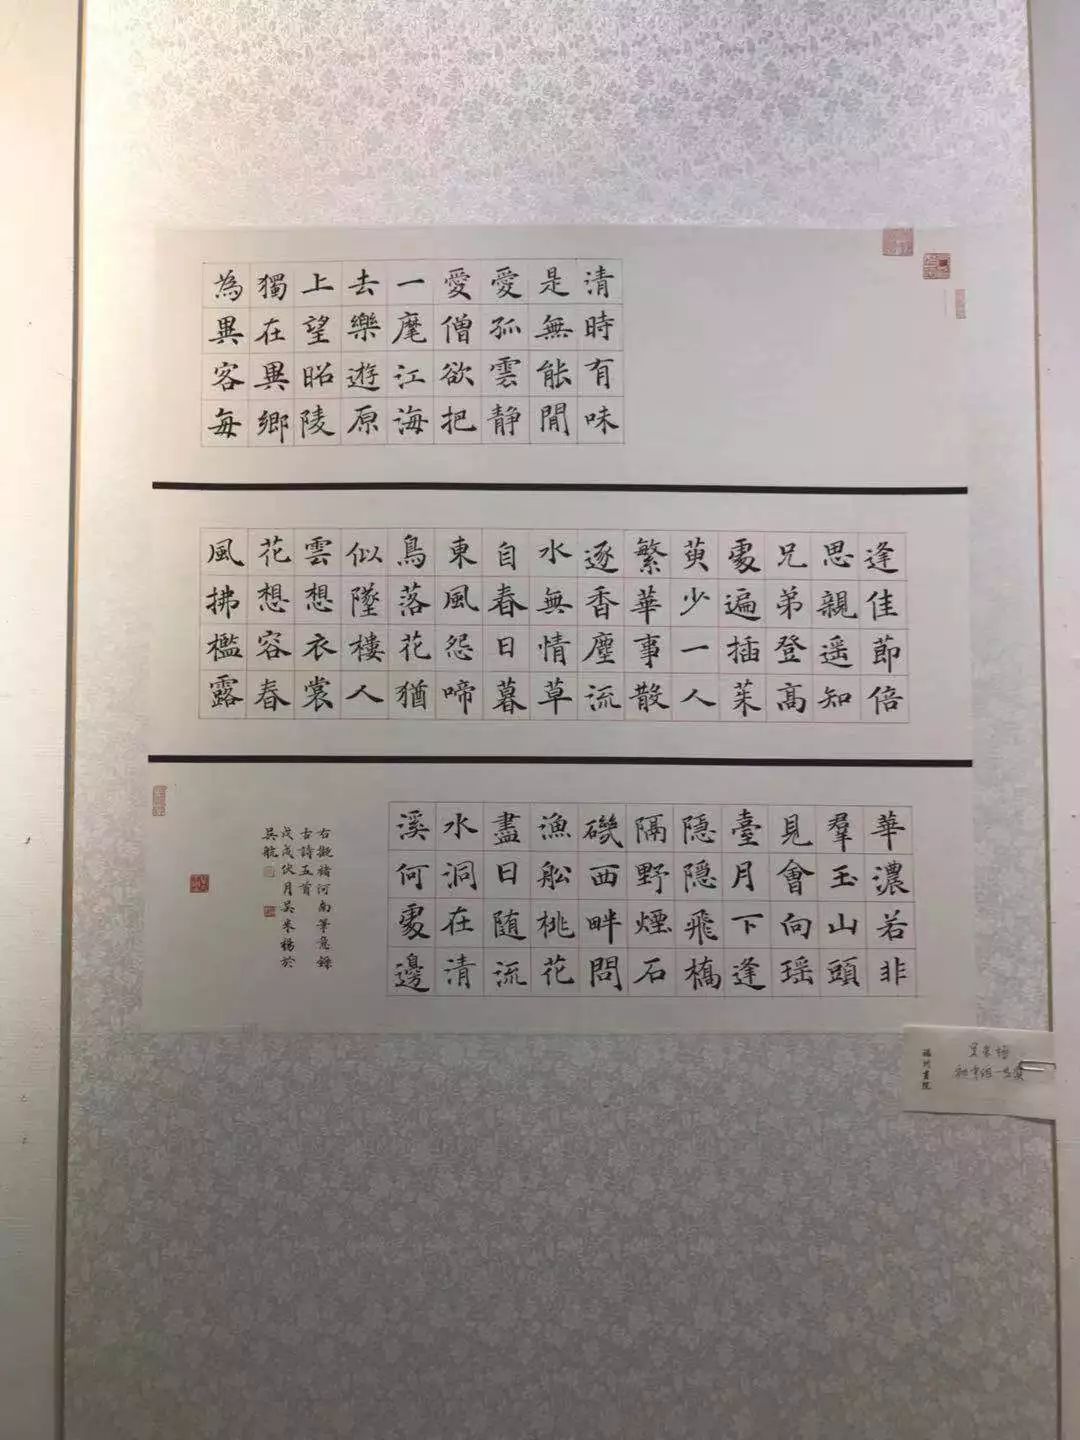 清時有味
是無能閒
愛孤雲静
愛僧欲把
一麾江海
去樂遊原
上望昭陵
獨在異鄉
為異客每
逢佳節倍
思親遥知
兄弟登高
處遍插茱
萸少一人
繁華事散
逐香塵流
水無情草
自春日暮
東風怨啼
鳥落花猶
似墜樓人
雲想衣裳
花想容春
風拂檻露
華濃若非
羣玉山頭
見會向瑶
臺月下逢
隱隱飛橋
隔野煙石
磯西畔問
漁船桃花
盡日随流
水洞在清
溪何處邊
右擬褚河南筆意錄
古詩五首
戊戌伏月吴米楊於
吴航